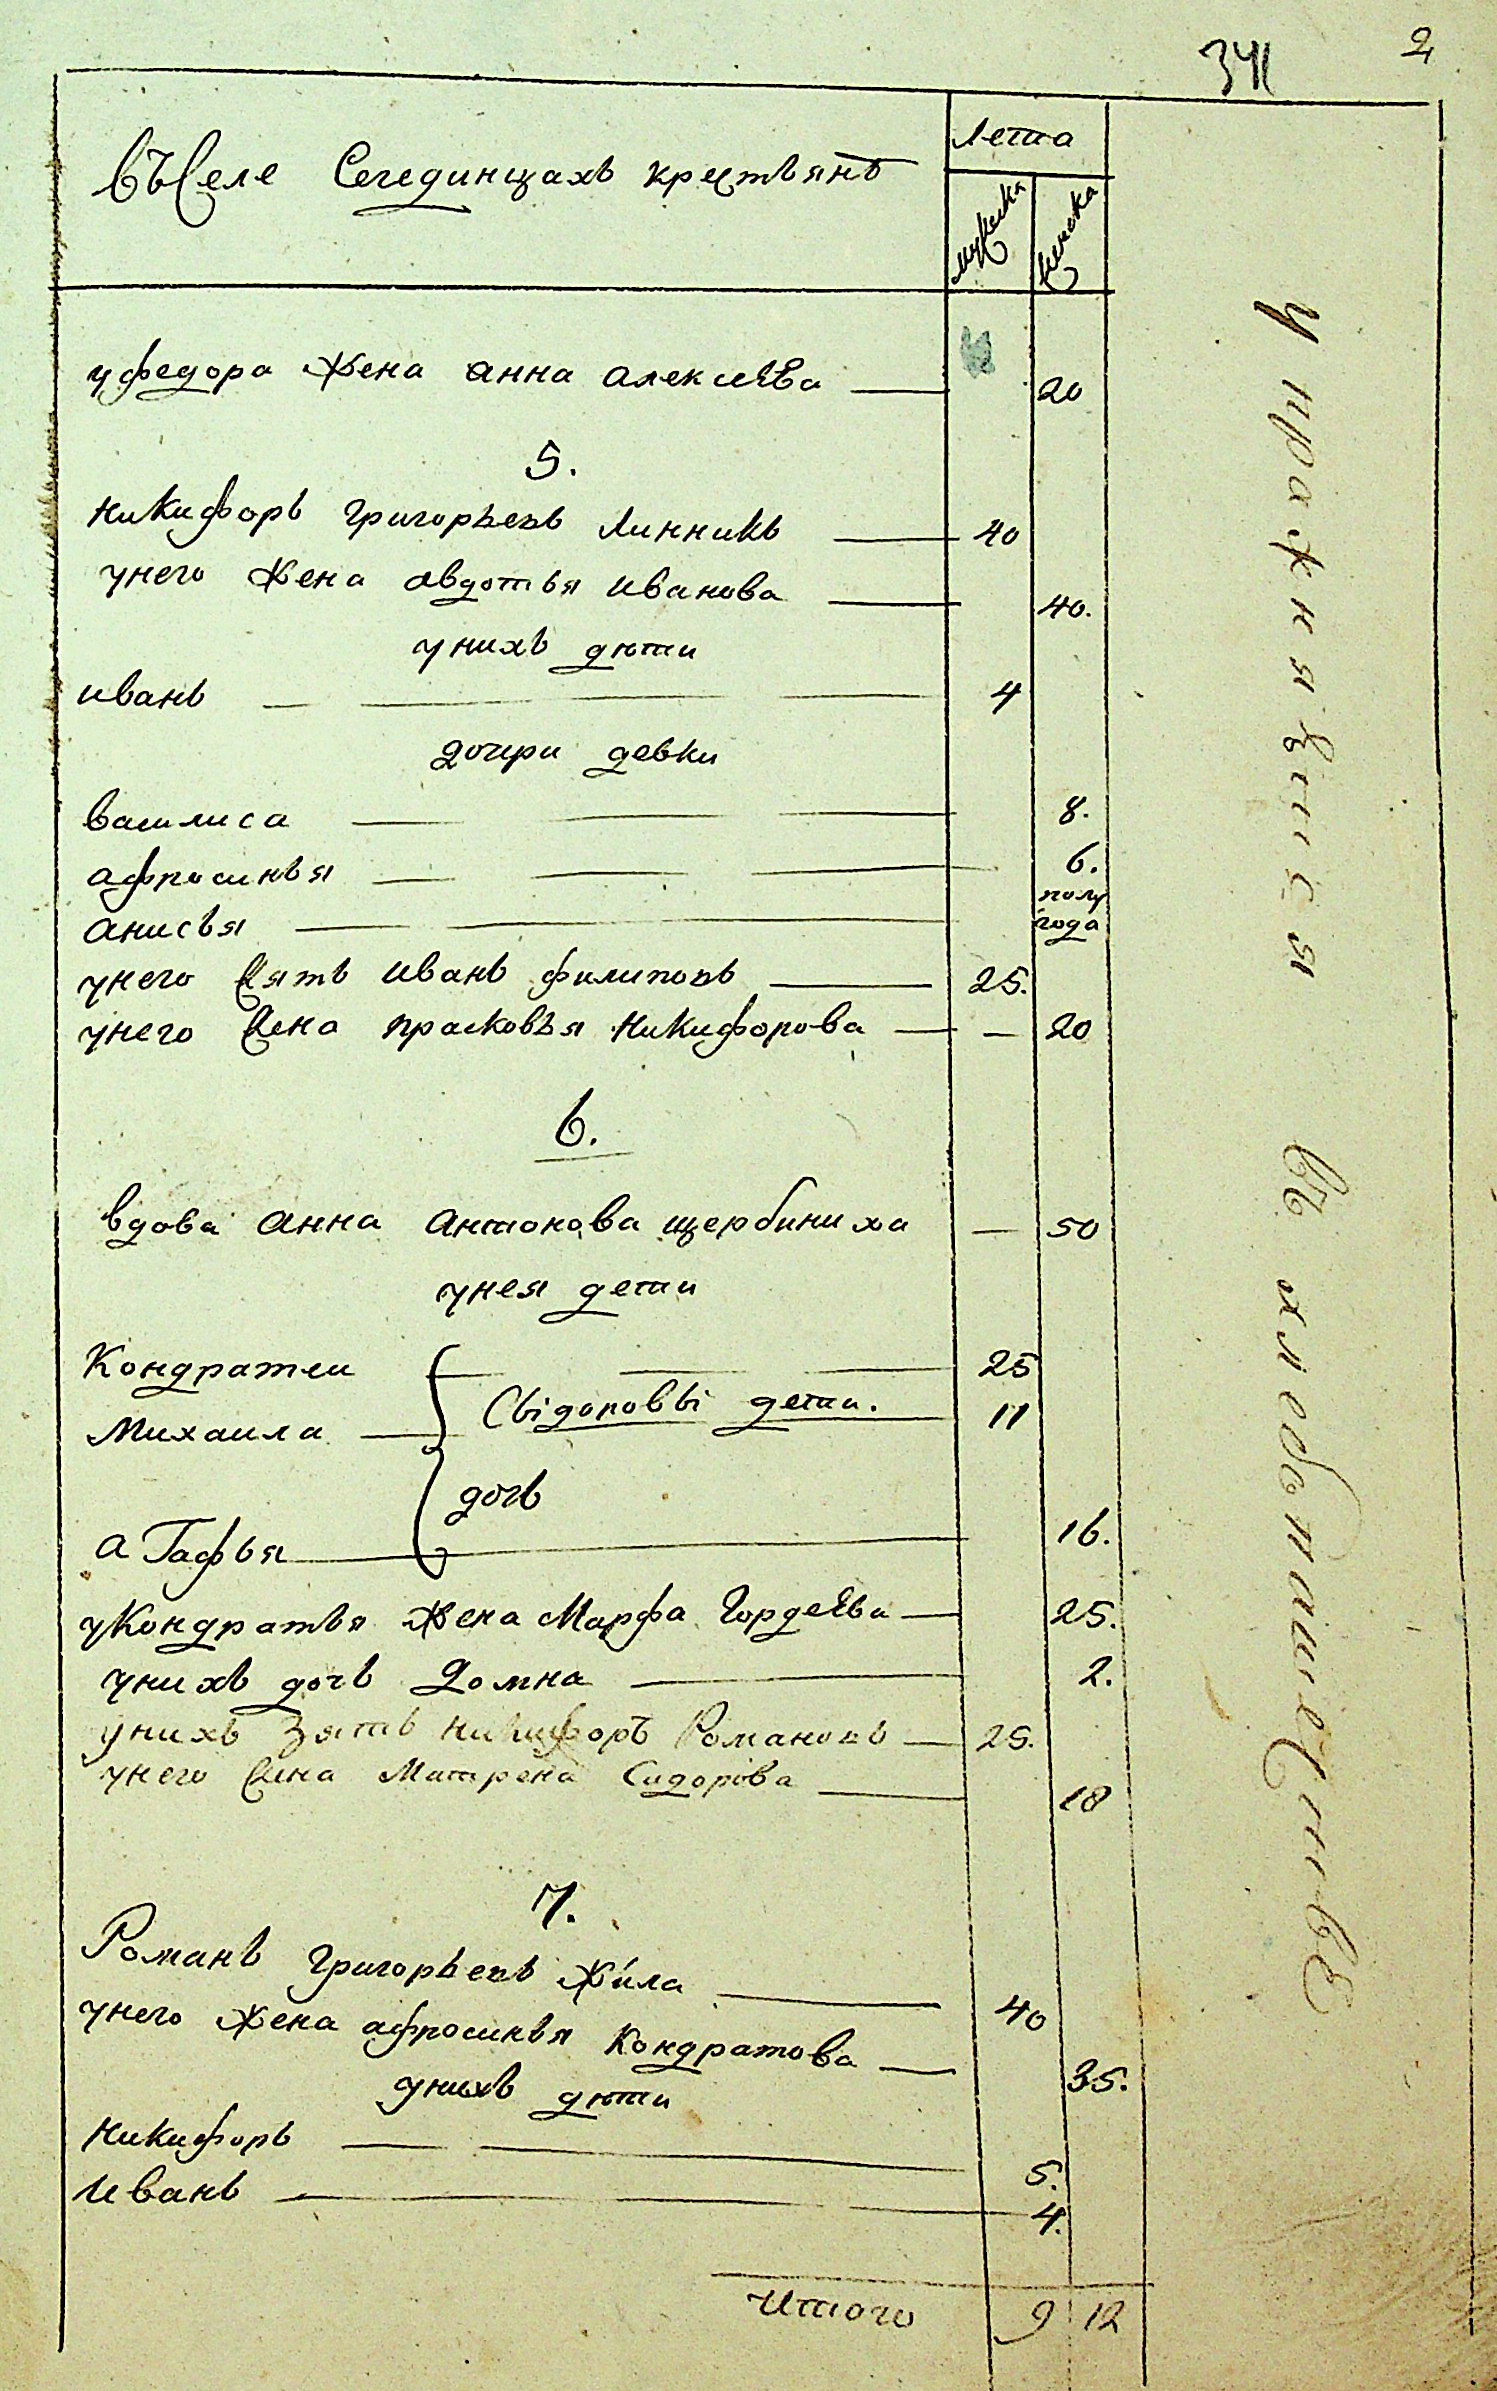 341 2
Лета
въ Селе Сегединцахъ крестьянъ
мужска женска
у федора жена анна алексиева 20
5.
никифоръ григорьевъ линникъ 40
унего жена авдотья иванова 40.
унихъ дѣти
иванъ 4
дочери девки
василиса 8.
афросинья 6.
анисья полу
года
унего зять иванъ филиповъ 25.
унего жена прасковья никифорова 20
6.
вдова анна антонова щербиниха 50
унея дети
Кондратеи 25
Михаила Сыдоровы дети. 11
дочь
агафья 16.
у Кондратья жена Марфа Гордеева 25.
унихъ дочь Домна 2.
унихъ Зять никифоръ Романовъ 25.
унего жена Матрена Сидорова 18
7.
Романъ григорьевъ жила 40
унего жена афросинья Кондратова 35.
унихъ дѣти
никифоръ 5.
иванъ 4.
Итого 9 12
упражняется въ хлебопашестве